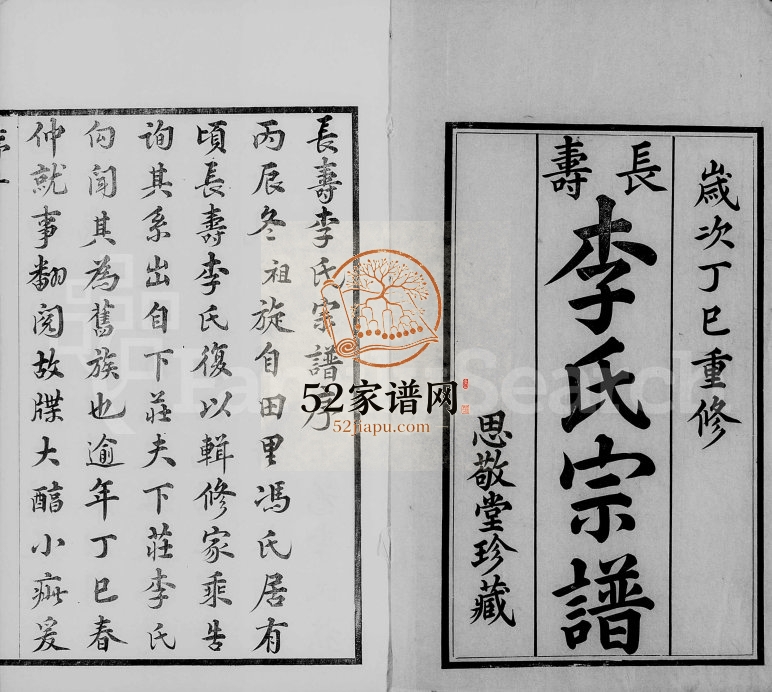 歲次丁巳重修
長壽
李氏宗譜
思敬堂珍藏
長壽李氏宗譜序
丙辰冬祖旋自田里馮氏居有
頃長壽李氏復以輯修家乘告
詢其系出自下莊夫下莊李氏
向聞其為舊族也逾年丁巳春
仲就事翻閱故牒大醇小疵爰
52家谱网
52jiapu.com
FamilySearch